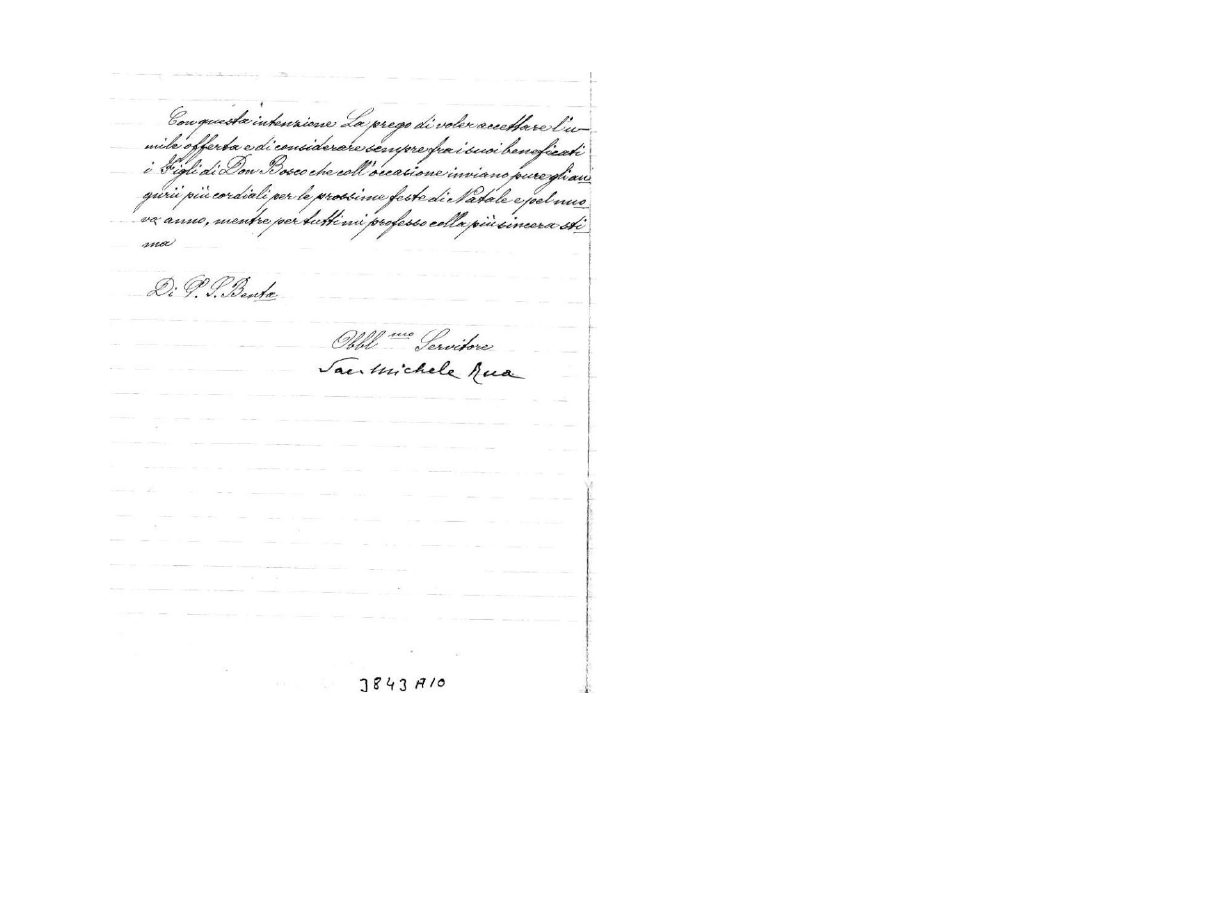 Con questa intenzione La prego di voler accettare l'u-
mile offerta e di considerare sempre fra i suoi beneficati
i Figli di Don Bosco che coll'occasione inviano pure gli au
gurii più cordiali per le prossime feste di Natale e pel nuo
vo anno, mentre per tutti mi professo colla più sincera sti
ma
Di V. S. Benta
Obbl mo Servitore
Sac. Michele Rua
3843 A10